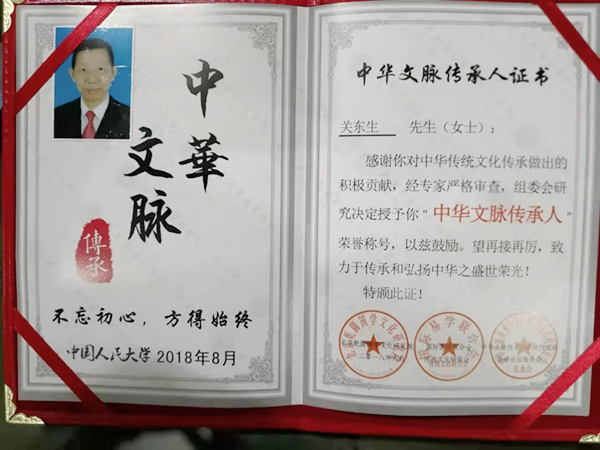 中華
文脈
傳承
不忘初心，方得始终
中国人民大学 2018年8月
中华文脉传承人证书
关东生 先生（女士）：
感谢你对中华传统文化传承做出的
积极贡献，经专家严格审查，组委会研
究决定授予你"中华文脉传承人"
荣誉称号，以兹鼓励。望再接再厉，致
力于传承和弘扬中华之盛世荣光！
特颁此证！